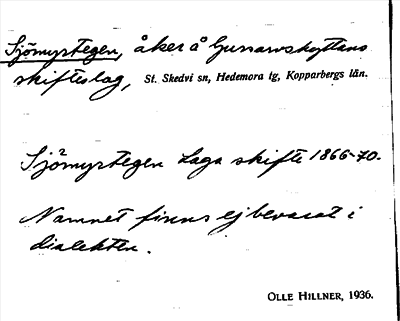 Sjömyrtegen, åker å Gunnarshyttans
skifteslag, St. Skedvi sn, Hedemora tg, Kopparbergs län.
Sjö²myrtegen Laga skifte 1866-70.
Namnet finns ej bevarat i
dialekten.
OLLE HILLNER, 1936.